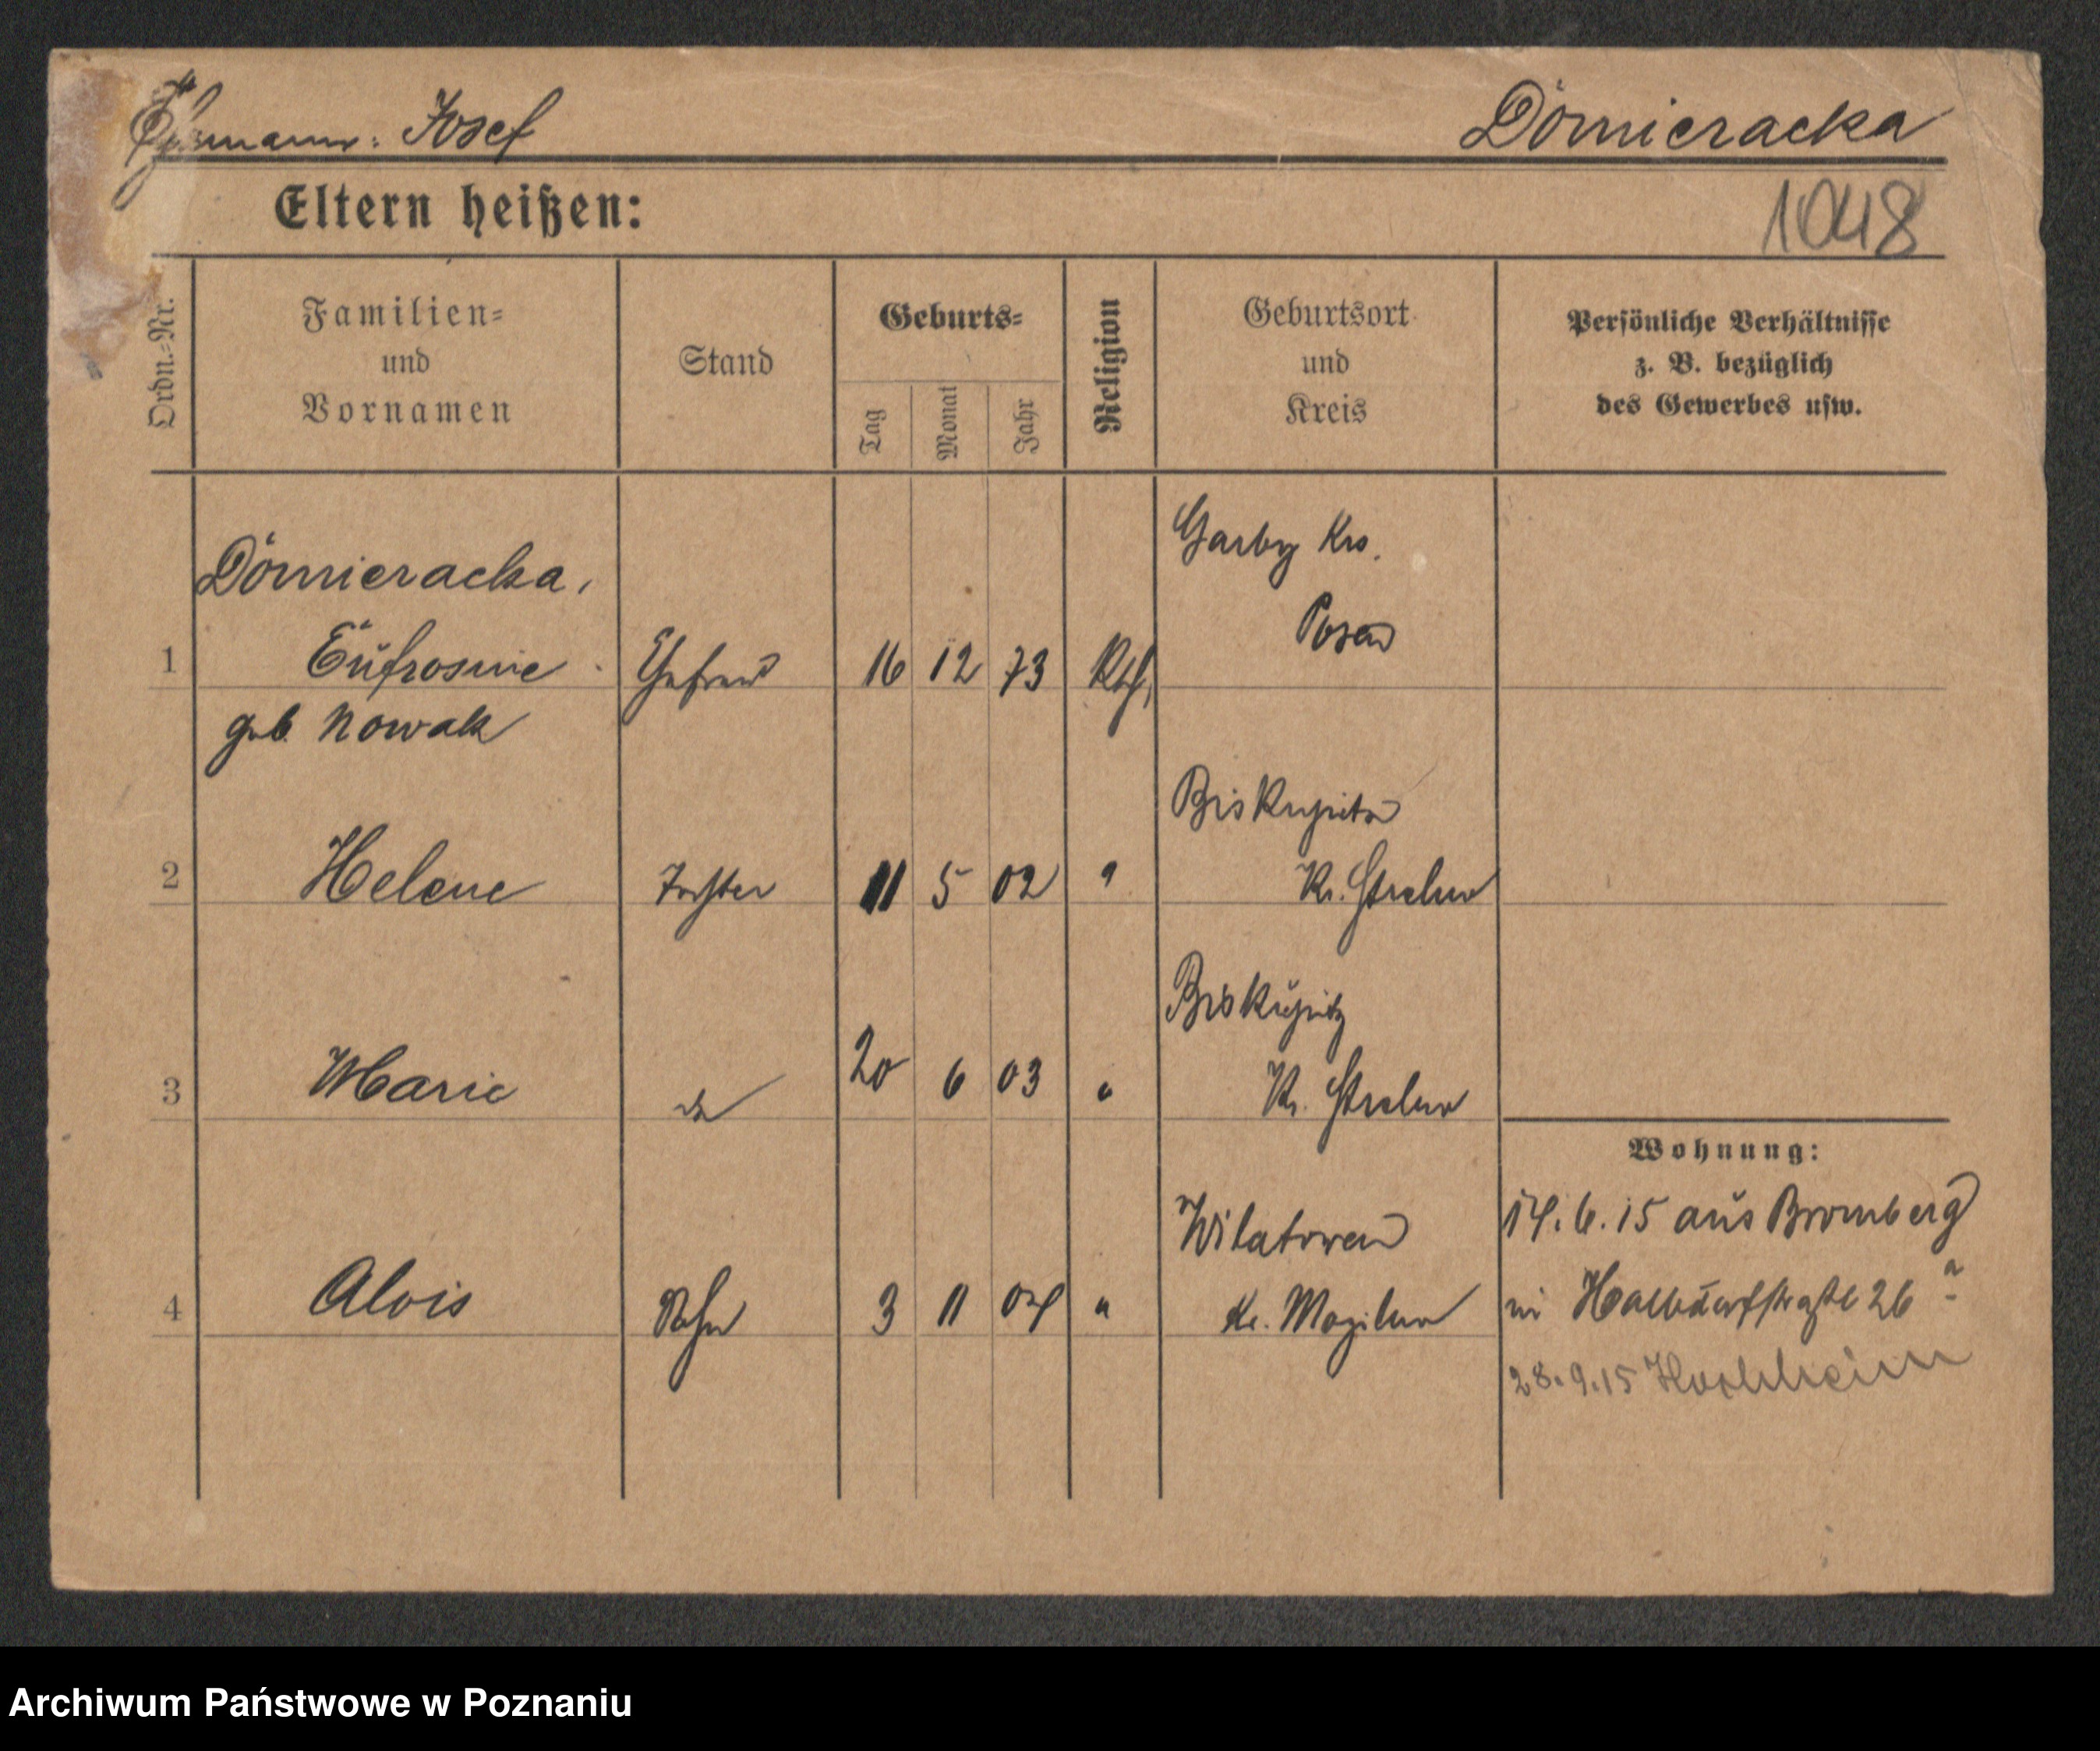 Ehemann: Josef Dömieracka
Eltern heißen:
1048
Ordn.-Nr.
Familien-
und
Vornamen
Stand
Geburts-
Tag
Monat
Jahr
Religion
Geburtsort
und
Kreis
Persönliche Verhältnisse
z. B. bezüglich
des Gewerbes usw.
Garby Krs.
Dömieracka,
Posen
1 Eufrosine Ehefrau 16 12 73 Kth,
geb. Nowak
Biskupitz
2 Helene Tochter 11 5 02 "
Kr. Strelno
Biskupitz
3 Marie do 20 6 03 "
Kr. Strelno
Wohnung:
14. 6. 15 aus Bromberg
Wilatowen
4 Alois Sohn 3 11 04 "
Kr. Mogilno
in Halbdorfstraße 26 a
28. 9. 15
Archiwum Państwowe w Poznaniu